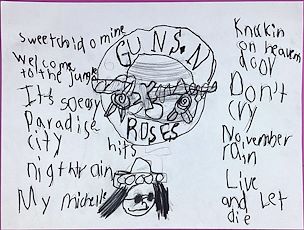 sweetchildomine
welcome
to the jungle
It's so easy
Paradise
city
nightrain
My michelle
GUNS.N
ROSES
hits
Knockin
on heavens
door
Don't
cry
November
rain
Live
and Let
die